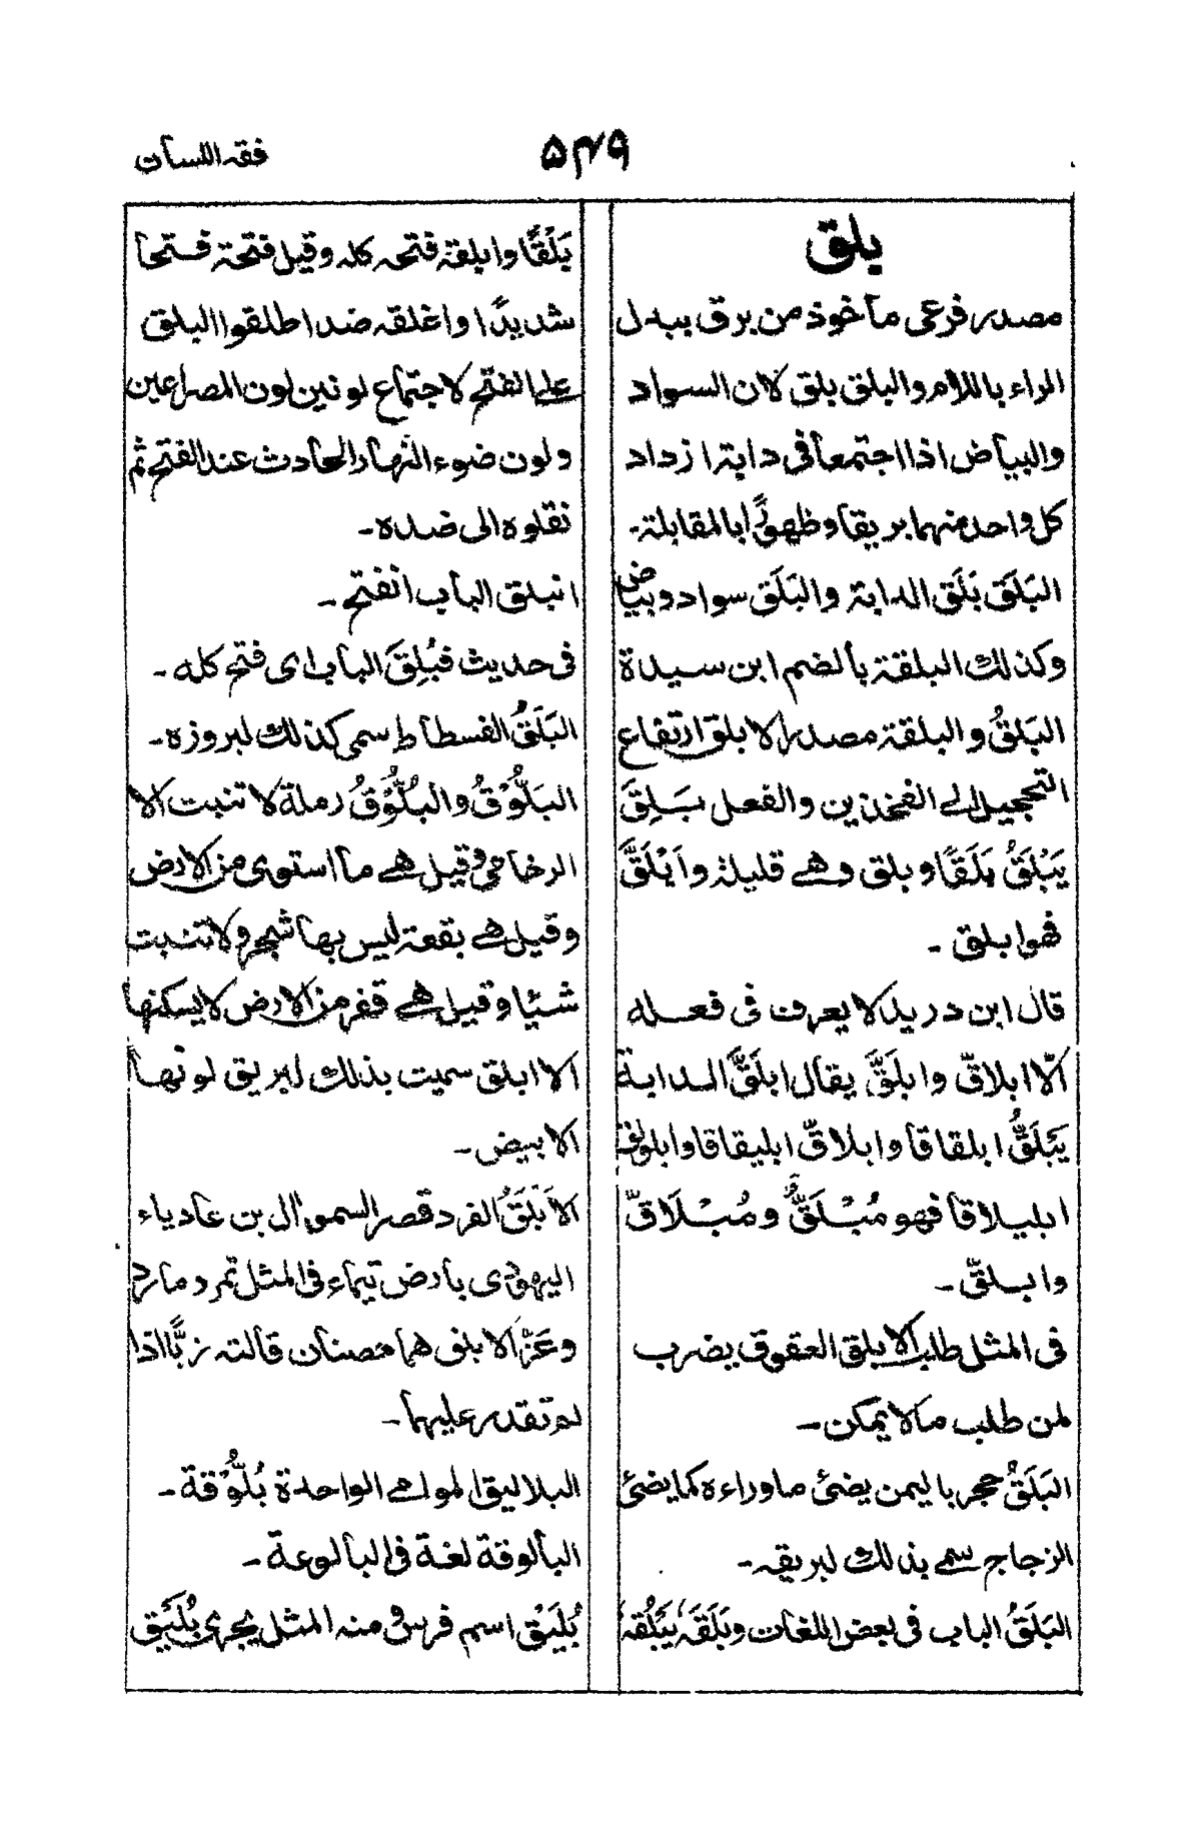 فقہ اللسان
۵۴۹
بلق
مصدر فرعی مأخوذ من برق یبدل
الراء باللام والبلق بلق لان السواد
والبیاض اذا اجتمعا فی دابۃ ازداد
کل واحد منہما بریقا وظھورًا بالمقابلۃ۔
البَلَق بَلَق الدابۃ والبَلَق سواد وبیاض
وکذلك البلقۃ بالضم ابن سیدة
البَلَقُ والبلقۃ مصدر الابلق ارتفاع
التحجیل الی الفخذین والفعل بَلِقَ
یَبْلَقُ بَلَقًا وبلق وھے قلیلۃ وابْلَقَّ
فھو ابلق ۔
قال ابن درید لا یعرف فی فعلہ
الّا ابلاقّ وابلَقَّ یقال ابلَقَّ الدابۃ
یَبلَقُّ ابلقاقا وابلاقّ ابلیقاقا وابلولق
ابلیلاقا فھو مُبْلَقٌّ ومُبْلَاقّ
وابلقّ ۔
فی المثل طلب الابلق العقوق یضرب
لمن طلب مالا یمکن۔
البَلَقُ حجر بالیمن یضئ ماوراءہ کما یضئ
الزجاج سمے بذلك لبریقہ۔
البَلَقُ الباب فی بعض اللغات وبَلَقَہٗ یَبْلُقہ
بَلْقًا وابلقۃ فتحہ کلہ وقیل فتحۃ فتحا
شدیدًا واغلقہ ضد اطلقوا البلق
علی الفتح لاجتماع لونین لون المصراعین
ولون ضوء النہار الحادث عند الفتح ثم
نقلوہ الی ضدہ۔
انبلق الباب انفتح ۔
فی حدیث فبُلِقَ الباب ای فتح کلہ ۔
البَلَقُ الفسطاط سمی کذلك لبروزہ۔
البَلُّوْقُ والبُلُّوْقُ رملة لا تنبت الا
الرخامی وقیل ھے ما استوی من الارض
وقیل ھے بقعۃ لیس بھا شجر ولا تنبت
شیئا وقیل ھے قفر من الارض لا یسکنھا
الا ابلق سمیت بذلك لبریق لونھا
الابیض ۔
الاَبْلَقُ الفرد قصر السموأل بن عادیاء
الیھودی بارض تیماء فی المثل تمرد مارد
وعَزَّ الابلق ھما حصنان قالتہ زبَّا اذا
لم تقدر علیہما۔
البلالیق الموامے الواحدة بُلُّوْقة ۔
البالوقة لغة فی البالوعة ۔
بُلَیْق اسم فرس ومنہ المثل یجری بُلَیْق